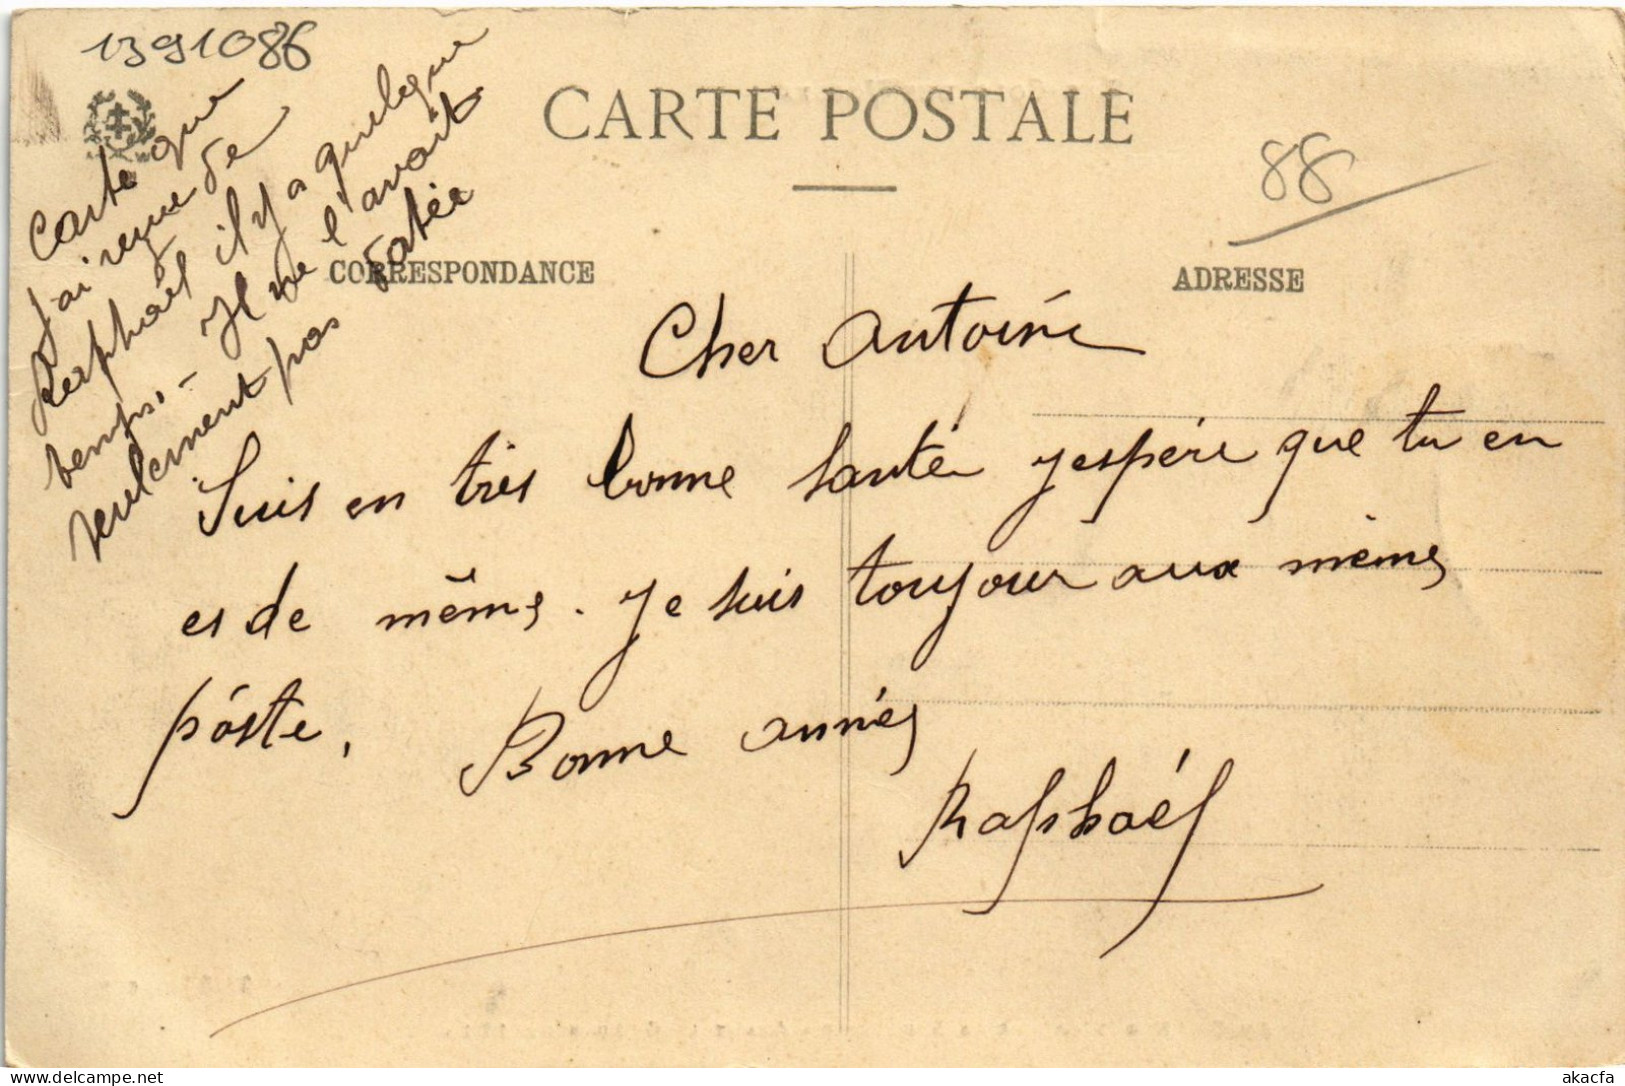 1391086
CARTE POSTALE
88
CORRESPONDANCE
ADRESSE
Carte que
j'ai reçue de
Raphaël il y a quelque
temps. - Il ne l'avait
seulement pas datée
Cher Antoine
Suis en très bonne santé j'espère que tu en
es de même. Je suis toujour aux mêmes
pôste, Bonne année
Raphaël
akacfa